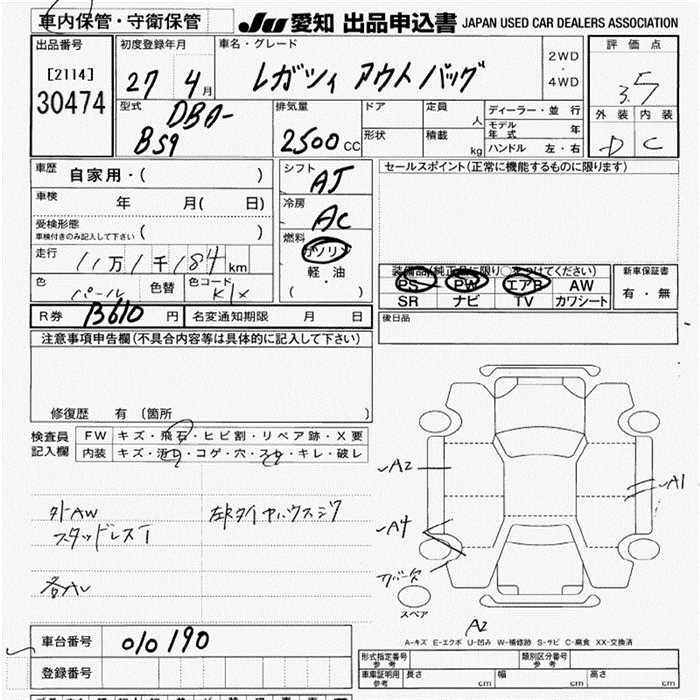 車内保管・守衛保管 JU 愛知 出品申込書 JAPAN USED CAR DEALERS ASSOCIATION
出品番号 初度登録年月 車名・グレード 評価点
[2114] 27 4月 レガシィ アウトバック 2WD・4WD 3.5
30474
型式 DBA-BS9 排気量 2500cc ドア 定員 人 ディーラー・並行 外装 内装
形状 積載 kg モデル年式 年 D C
ハンドル 左・右
車歴 自家用・( ) シフト AT セールスポイント(正常に機能するものに限ります)
車検 年 月( 日) 冷房 AC
受検形態
車検付きのみ記入して下さい ( ) 燃料 ガソリン
走行 11万1千184km 軽・油
・( ) 装備品(純正品に限り○をつけてください) 新車保証書
色 パール 色替 色コード K1X PS PW エアB AW 有・無
SR ナビ TV カワシート
R券 B610 円 名変通知期限 月 日 後日品
注意事項申告欄(不具合内容等は具体的に記入して下さい)
修復歴 有 (箇所 )
検査員記入欄 FW キズ・飛石・ヒビ割・リペア跡・X要
内装 キズ・汚れ・コゲ・穴・スレ・キレ・破レ
A2
A1
外AW
スタッドレスT
A4
スペア
A2
A-キズ E-エクボ U-凹み W-補修跡 S-サビ C-腐食 XX-交換済
車台番号 010190
登録番号
形式指定番号 参考 類別区分番号 参考
車庫証明用 参考 長さ cm 幅 cm 高さ cm